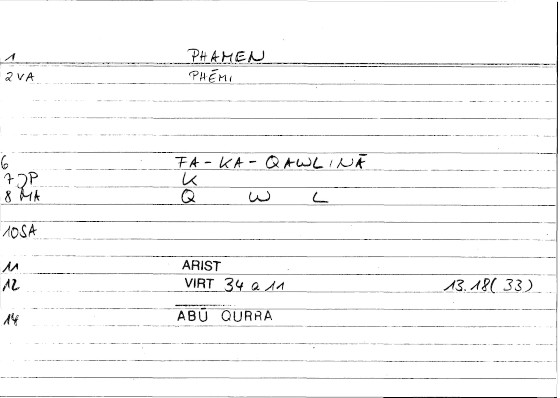 1 PHAMEN
2 VA PHĒMI
6 FA-KA-QAWLINĀ
7 JP K
8 MA Q W L
10 SA
11 ARIST
12 VIRT 34 a 11 13.18(33)
14 ABŪ QURRA